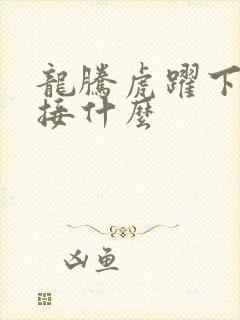 龍騰虎躍下
接什麼
凶魚